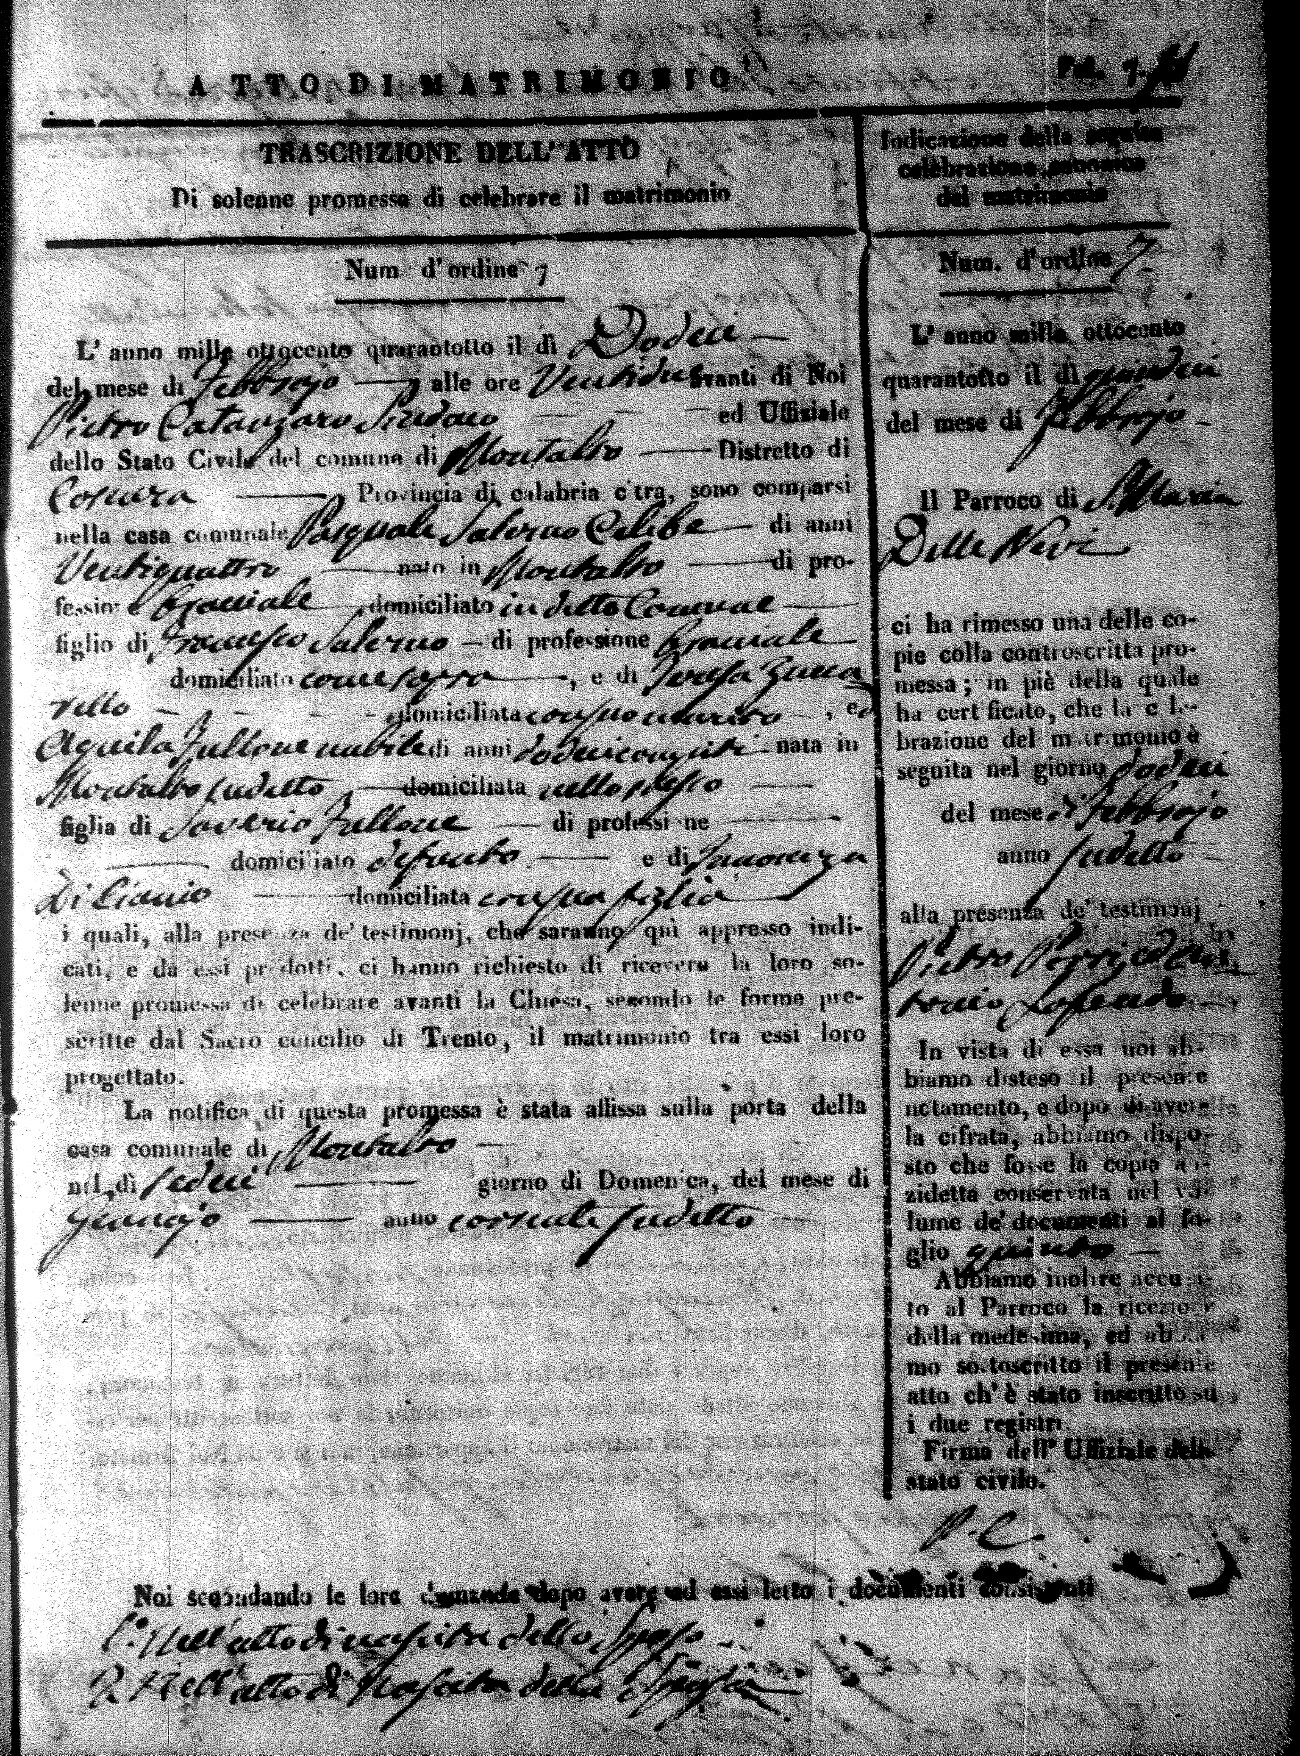 ATTO DI MATRIMONIO
Pol. 7.
TRASCRIZIONE DELL'ATTO
Di solenne promessa di celebrare il matrimonio
Num d'ordine 7
L'anno mille ottocento quarantotto il dì Dodeci
del mese di Febbrajo alle ore Ventidue avanti di Noi
Pietro Catanzaro Sindaco ed Uffiziale
dello Stato Civile del comune di Montalto Distretto di
Cosenza Provincia di calabria citra, sono comparsi
nella casa comunale Pasquale Salerno Celibe di anni
Ventiquattro nato in Montalto di pro-
fessione Bracciale domiciliato in detto Comune
figlio di Francesco Salerno di professione Bracciale
domiciliato come sopra, e di Teresa Zucca
rello domiciliata con suo marito, ed
Aquila Fullone nubile di anni dodeci compiti nata in
Montalto sudetto domiciliata nello stesso
figlia di Saverio Fullone di professione
domiciliato defunto e di Innocenza
Di Cianio domiciliata con sua figlia
i quali, alla presenza de' testimonj, che saranno quì appresso indi-
cati, e da essi prodotti, ci hanno richiesto di ricevere la loro so-
lenne promessa di celebrare avanti la Chiesa, secondo le forme pre-
scritte dal Sacro concilio di Trento, il matrimonio tra essi loro
progettato.
La notifica di questa promessa è stata affissa sulla porta della
casa comunale di Montalto
nel dì sedeci giorno di Domenica, del mese di
Gennajo anno corrente sudetto
Indicazione della seguita
celebrazione canonica
del matrimonio
Num. d'ordine 7
L'anno mille ottocento
quarantotto il dì quindeci
del mese di Febbrajo
Il Parroco di S. Maria
Delle Nevi
ci ha rimesso una delle co-
pie colla controscritta pro-
messa; in piè della quale
ha certificato, che la cele-
brazione del matrimonio è
seguita nel giorno dodeci
del mese di Febbrajo
anno sudetto
alla presenza de' testimonj
Pietro Perri, ed An-
tonio Lofendo
In vista di essa noi ab-
biamo disteso il presente
notamento, e dopo di avere
la cifrata, abbiamo dispo-
sto che fosse la copia an-
zidetta conservata nel vo-
lume de' documenti al fo-
glio quinto
Abbiamo inoltre accusa-
to al Parroco la ricezione
della medesima, ed abbia-
mo sottoscritto il presente
atto ch'è stato inscritto su
i due registri
Firma dell'Uffiziale dello
stato civile.
P. C.
Noi secondando le loro domande dopo avere ad essi letto i documenti consistenti
1.° Nell'atto di nascita dello Sposo
2. Nell'atto di Nascita della Sposa